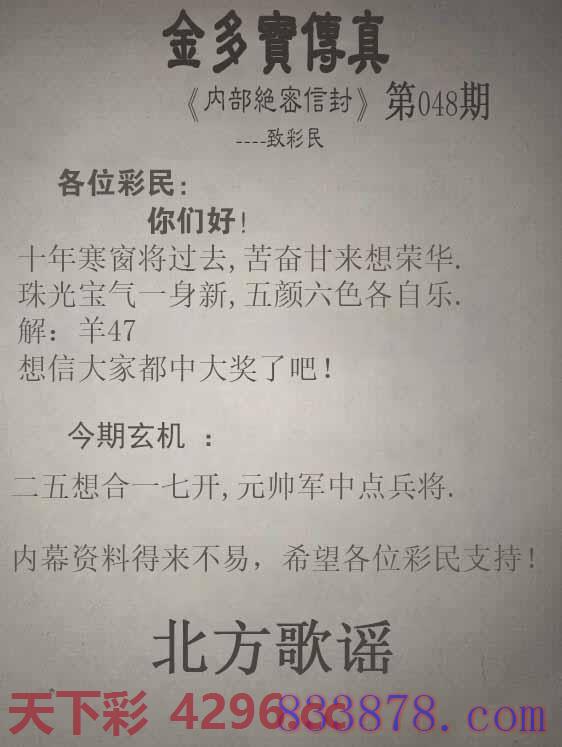 金多寶傳真
《内部絶密信封》第048期
----致彩民
各位彩民:
你们好!
十年寒窗将过去,苦奋甘来想荣华.
珠光宝气一身新,五颜六色各自乐.
解：羊47
想信大家都中大奖了吧!
今期玄机 ：
二五想合一七开,元帅军中点兵将.
内幕资料得来不易，希望各位彩民支持!
北方歌谣
天下彩 4296.cc
833878.com